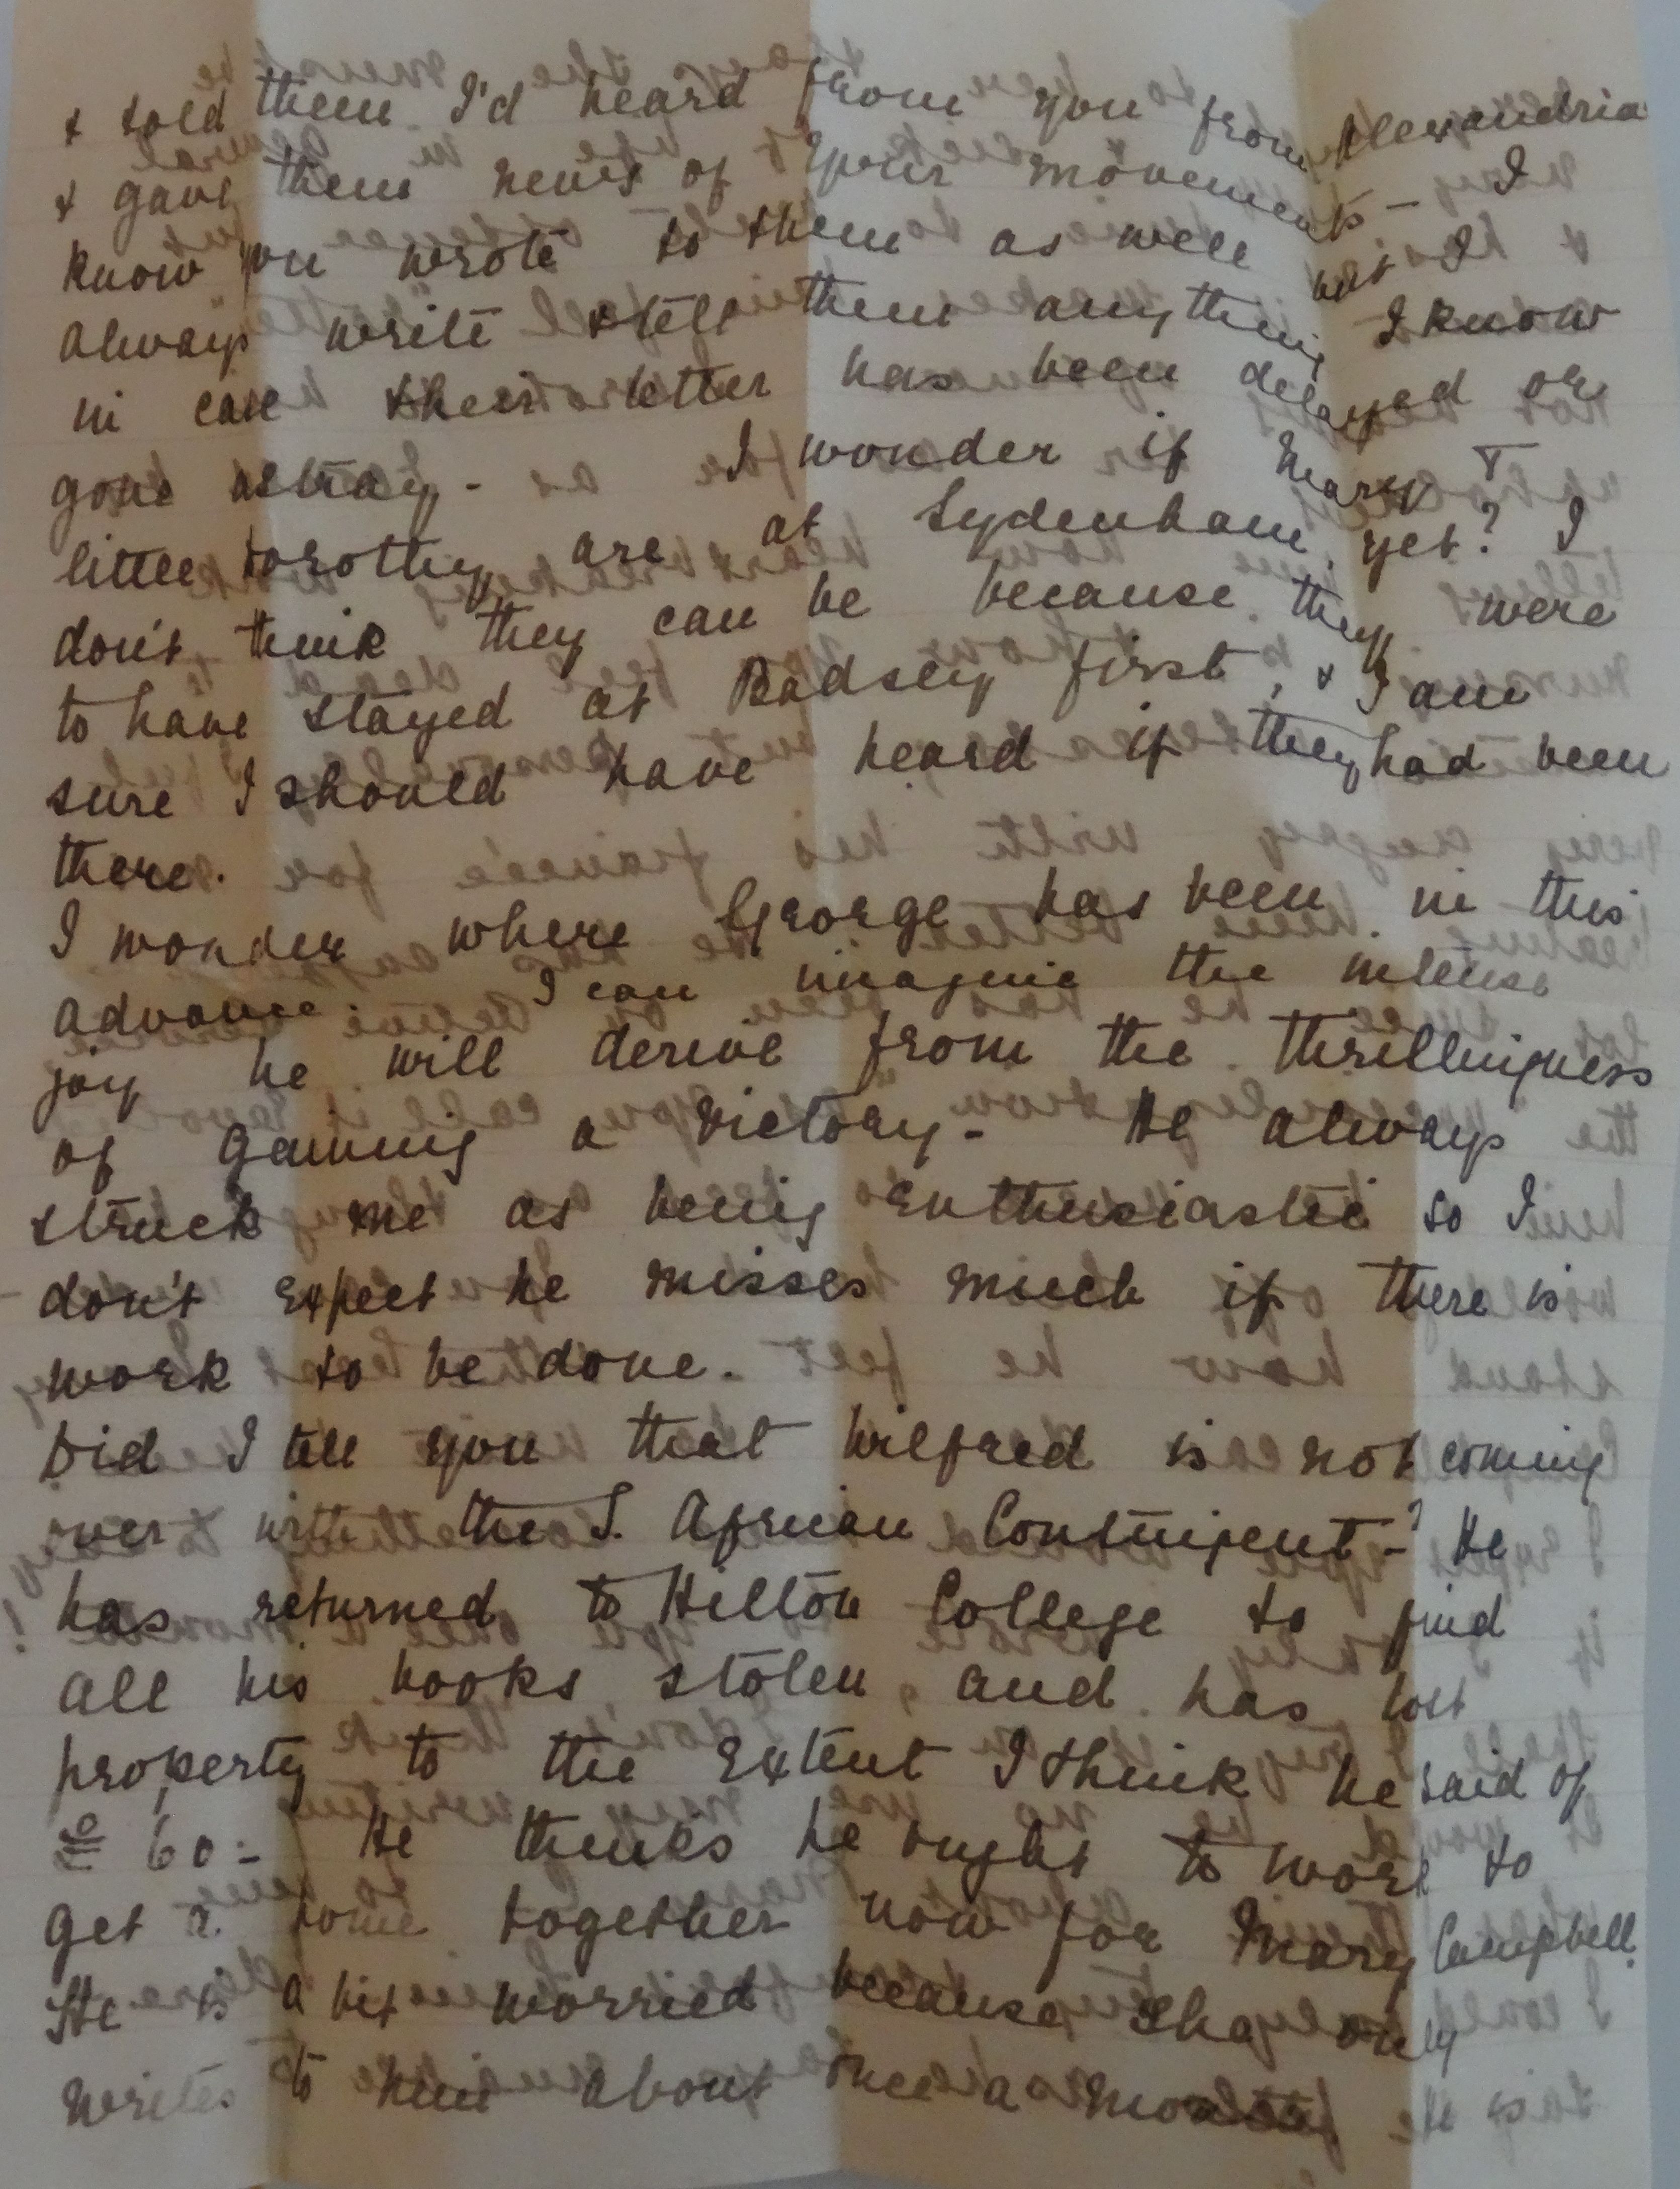 & told them I'd heard from you from Alexandria
& gave them news of your movements - I
know you wrote to them as well but I
always write & tell them anything I know
in case their letter has been delayed or
gone astray. - I wonder if Mary &
little Dorothy are at Sydenham yet? I
don't think they can be because they were
to have stayed at Badsey first, & I am
sure I should have heard if they had been
there.
I wonder where George has been in this
advance. I can imagine the intense
joy he will derive from the thrillingness
of gaining a victory - He always
struck me as being enthusiastic so I
don't expect he misses much if there is
work to be done.
Did I tell you that Wilfred is not coming
over with the S. African Contingent -? He
has returned to Hilton College to find
all his books stolen, and has lost
property to the extent I think he said of
£60 - He thinks he ought to work to
get a home together now for Mary Campbell.
He is a bit worried because she only
writes to him about once a month He is